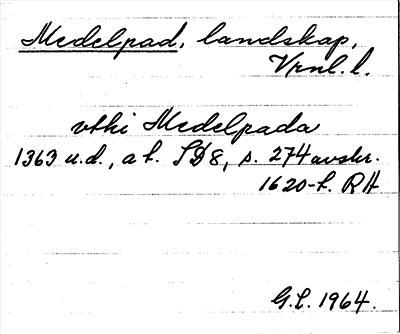 Medelpad, landskap,
Vrnl. l.
vthi Medelpada
1363 u.d., at. SD8, s. 274 avskr.
1620-t. RA
G.L. 1964.